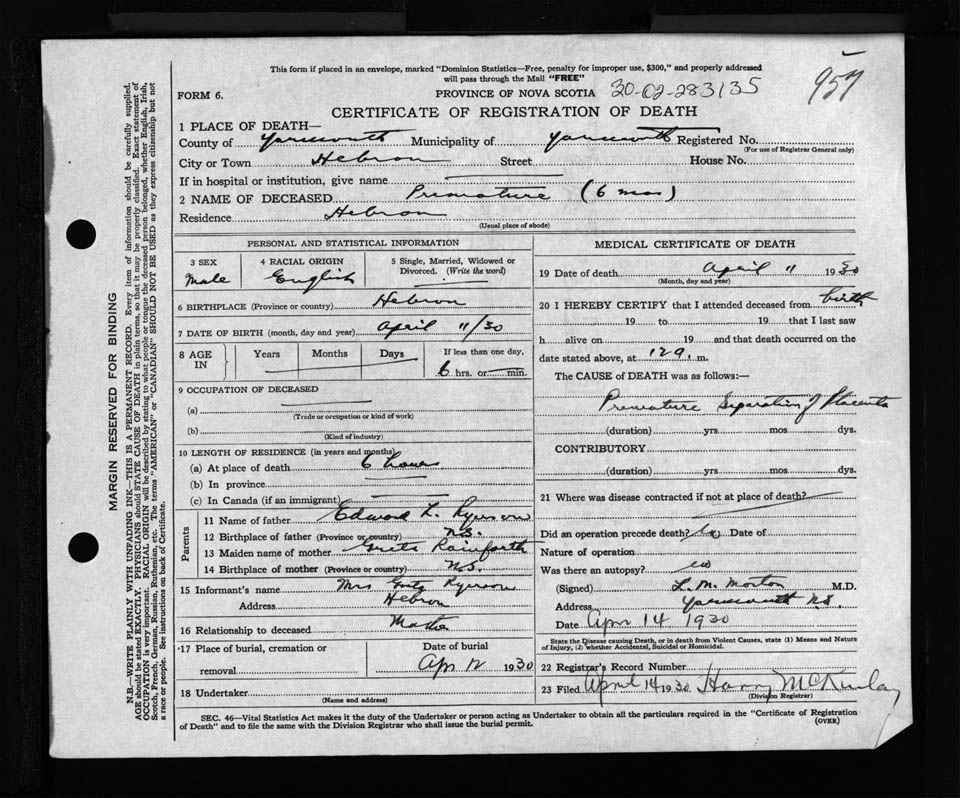 957
This form if placed in an envelope, marked "Dominion Statistics—Free, penalty for improper use, $300," and properly addressed
will pass through the Mail "FREE"
FORM 6.
PROVINCE OF NOVA SCOTIA 30-02-283135
CERTIFICATE OF REGISTRATION OF DEATH
1 PLACE OF DEATH—
County of Yarmouth Municipality of Yarmouth Registered No.
(For use of Registrar General only)
City or Town Hebron Street House No.
If in hospital or institution, give name
2 NAME OF DECEASED Premature (6 mos)
Residence Hebron
(Usual place of abode)
PERSONAL AND STATISTICAL INFORMATION
3 SEX Male
4 RACIAL ORIGIN English
5 Single, Married, Widowed or
Divorced. (Write the word)
6 BIRTHPLACE (Province or country) Hebron
7 DATE OF BIRTH (month, day and year) April 11/30
8 AGE IN
Years Months Days
If less than one day,
6 hrs. or min.
9 OCCUPATION OF DECEASED
(a)
(Trade or occupation or kind of work)
(b)
(Kind of industry)
10 LENGTH OF RESIDENCE (in years and months)
(a) At place of death 6 hours
(b) In province
(c) In Canada (if an immigrant)
Parents
11 Name of father Edward L. Ryerson
12 Birthplace of father (Province or country) N.S.
13 Maiden name of mother Greta Rainforth
14 Birthplace of mother (Province or country) N.S.
15 Informant's name Mrs Ryerson
Address Hebron
16 Relationship to deceased Mother
17 Place of burial, cremation or
removal
Date of burial
Apr 12 1930
18 Undertaker
(Name and address)
MEDICAL CERTIFICATE OF DEATH
19 Date of death April 11 1930
(Month, day and year)
20 I HEREBY CERTIFY that I attended deceased from birth
19 to 19 that I last saw
h alive on 19 and that death occurred on the
date stated above, at m.
The CAUSE of DEATH was as follows:—
Premature Separation of Placenta
(duration) yrs mos dys.
CONTRIBUTORY
(duration) yrs mos dys.
21 Where was disease contracted if not at place of death?
Did an operation precede death? No Date of
Nature of operation
Was there an autopsy? no
(Signed) L. M. Morton M.D.
Address Yarmouth N.S.
Date Apr 14 1930
State the Disease causing Death, or in death from Violent Causes, state (1) Means and Nature
of Injury, (2) whether Accidental, Suicidal or Homicidal.
22 Registrar's Record Number
23 Filed April 14 1930 Harry McKinlay
(Division Registrar)
SEC. 46—Vital Statistics Act makes it the duty of the Undertaker or person acting as Undertaker to obtain all the particulars required in the "Certificate of Registration
of Death" and to file the same with the Division Registrar who shall issue the burial permit.
(OVER)
MARGIN RESERVED FOR BINDING
N.B.—WRITE PLAINLY WITH UNFADING INK—THIS IS A PERMANENT RECORD. Every item of information should be carefully supplied.
AGE should be stated EXACTLY. PHYSICIANS should STATE CAUSE OF DEATH in plain terms, so that it may be properly classified. Exact statement of
OCCUPATION is very important. RACIAL ORIGIN will be described by stating to what people or tongue the deceased person belonged, whether English, Irish,
Scotch, French, German, Russian, Ruthenian, etc. The terms "AMERICAN" or "CANADIAN" SHOULD NOT BE USED as they express citizenship but not
a race or people. See instructions on back of Certificate.